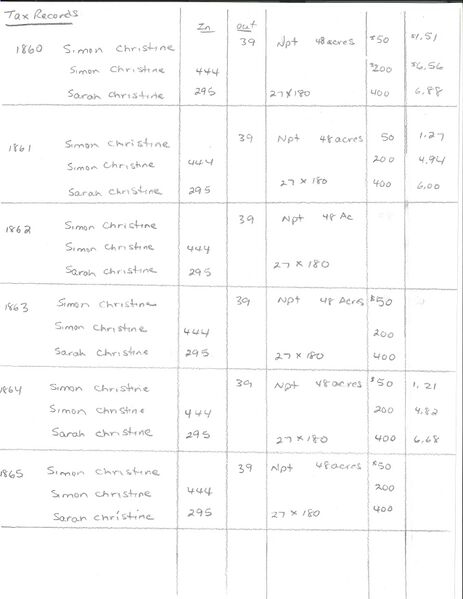 Tax Records In out
1860 Simon Christine 39 Npt 48 acres $50 $1.51
Simon Christine 444 $200 $6.56
Sarah Christine 295 27 x 180 400 6.88
1861 Simon Christine 39 Npt 48 acres 50 1.27
Simon Christine 444 200 4.94
Sarah Christine 295 27 x 180 400 6.00
1862 Simon Christine 39 Npt 48 Ac
Simon Christine 444
Sarah Christine 295 27 x 180
1863 Simon Christine 39 Npt 48 Acres $50
Simon Christine 444 200
Sarah Christine 295 27 x 180 400
1864 Simon Christine 39 Npt 48 acres $50 1.21
Simon Christine 444 200 4.82
Sarah Christine 295 27 x 180 400 6.68
1865 Simon Christine 39 Npt 48 acres $50
Simon Christine 444 200
Sarah Christine 295 27 x 180 400